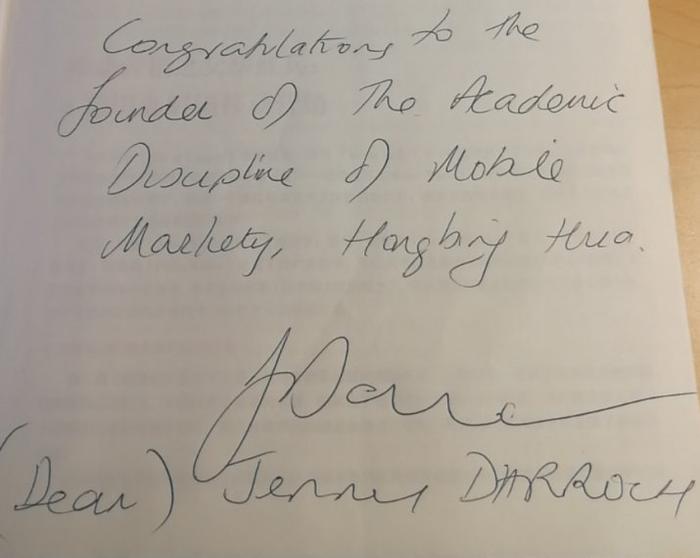 Congratulations to the
founder of The Academic
Discipline of Mobile
Markety, Hongbing Hua.
JDarr
(Dean) Jenny DARROCH